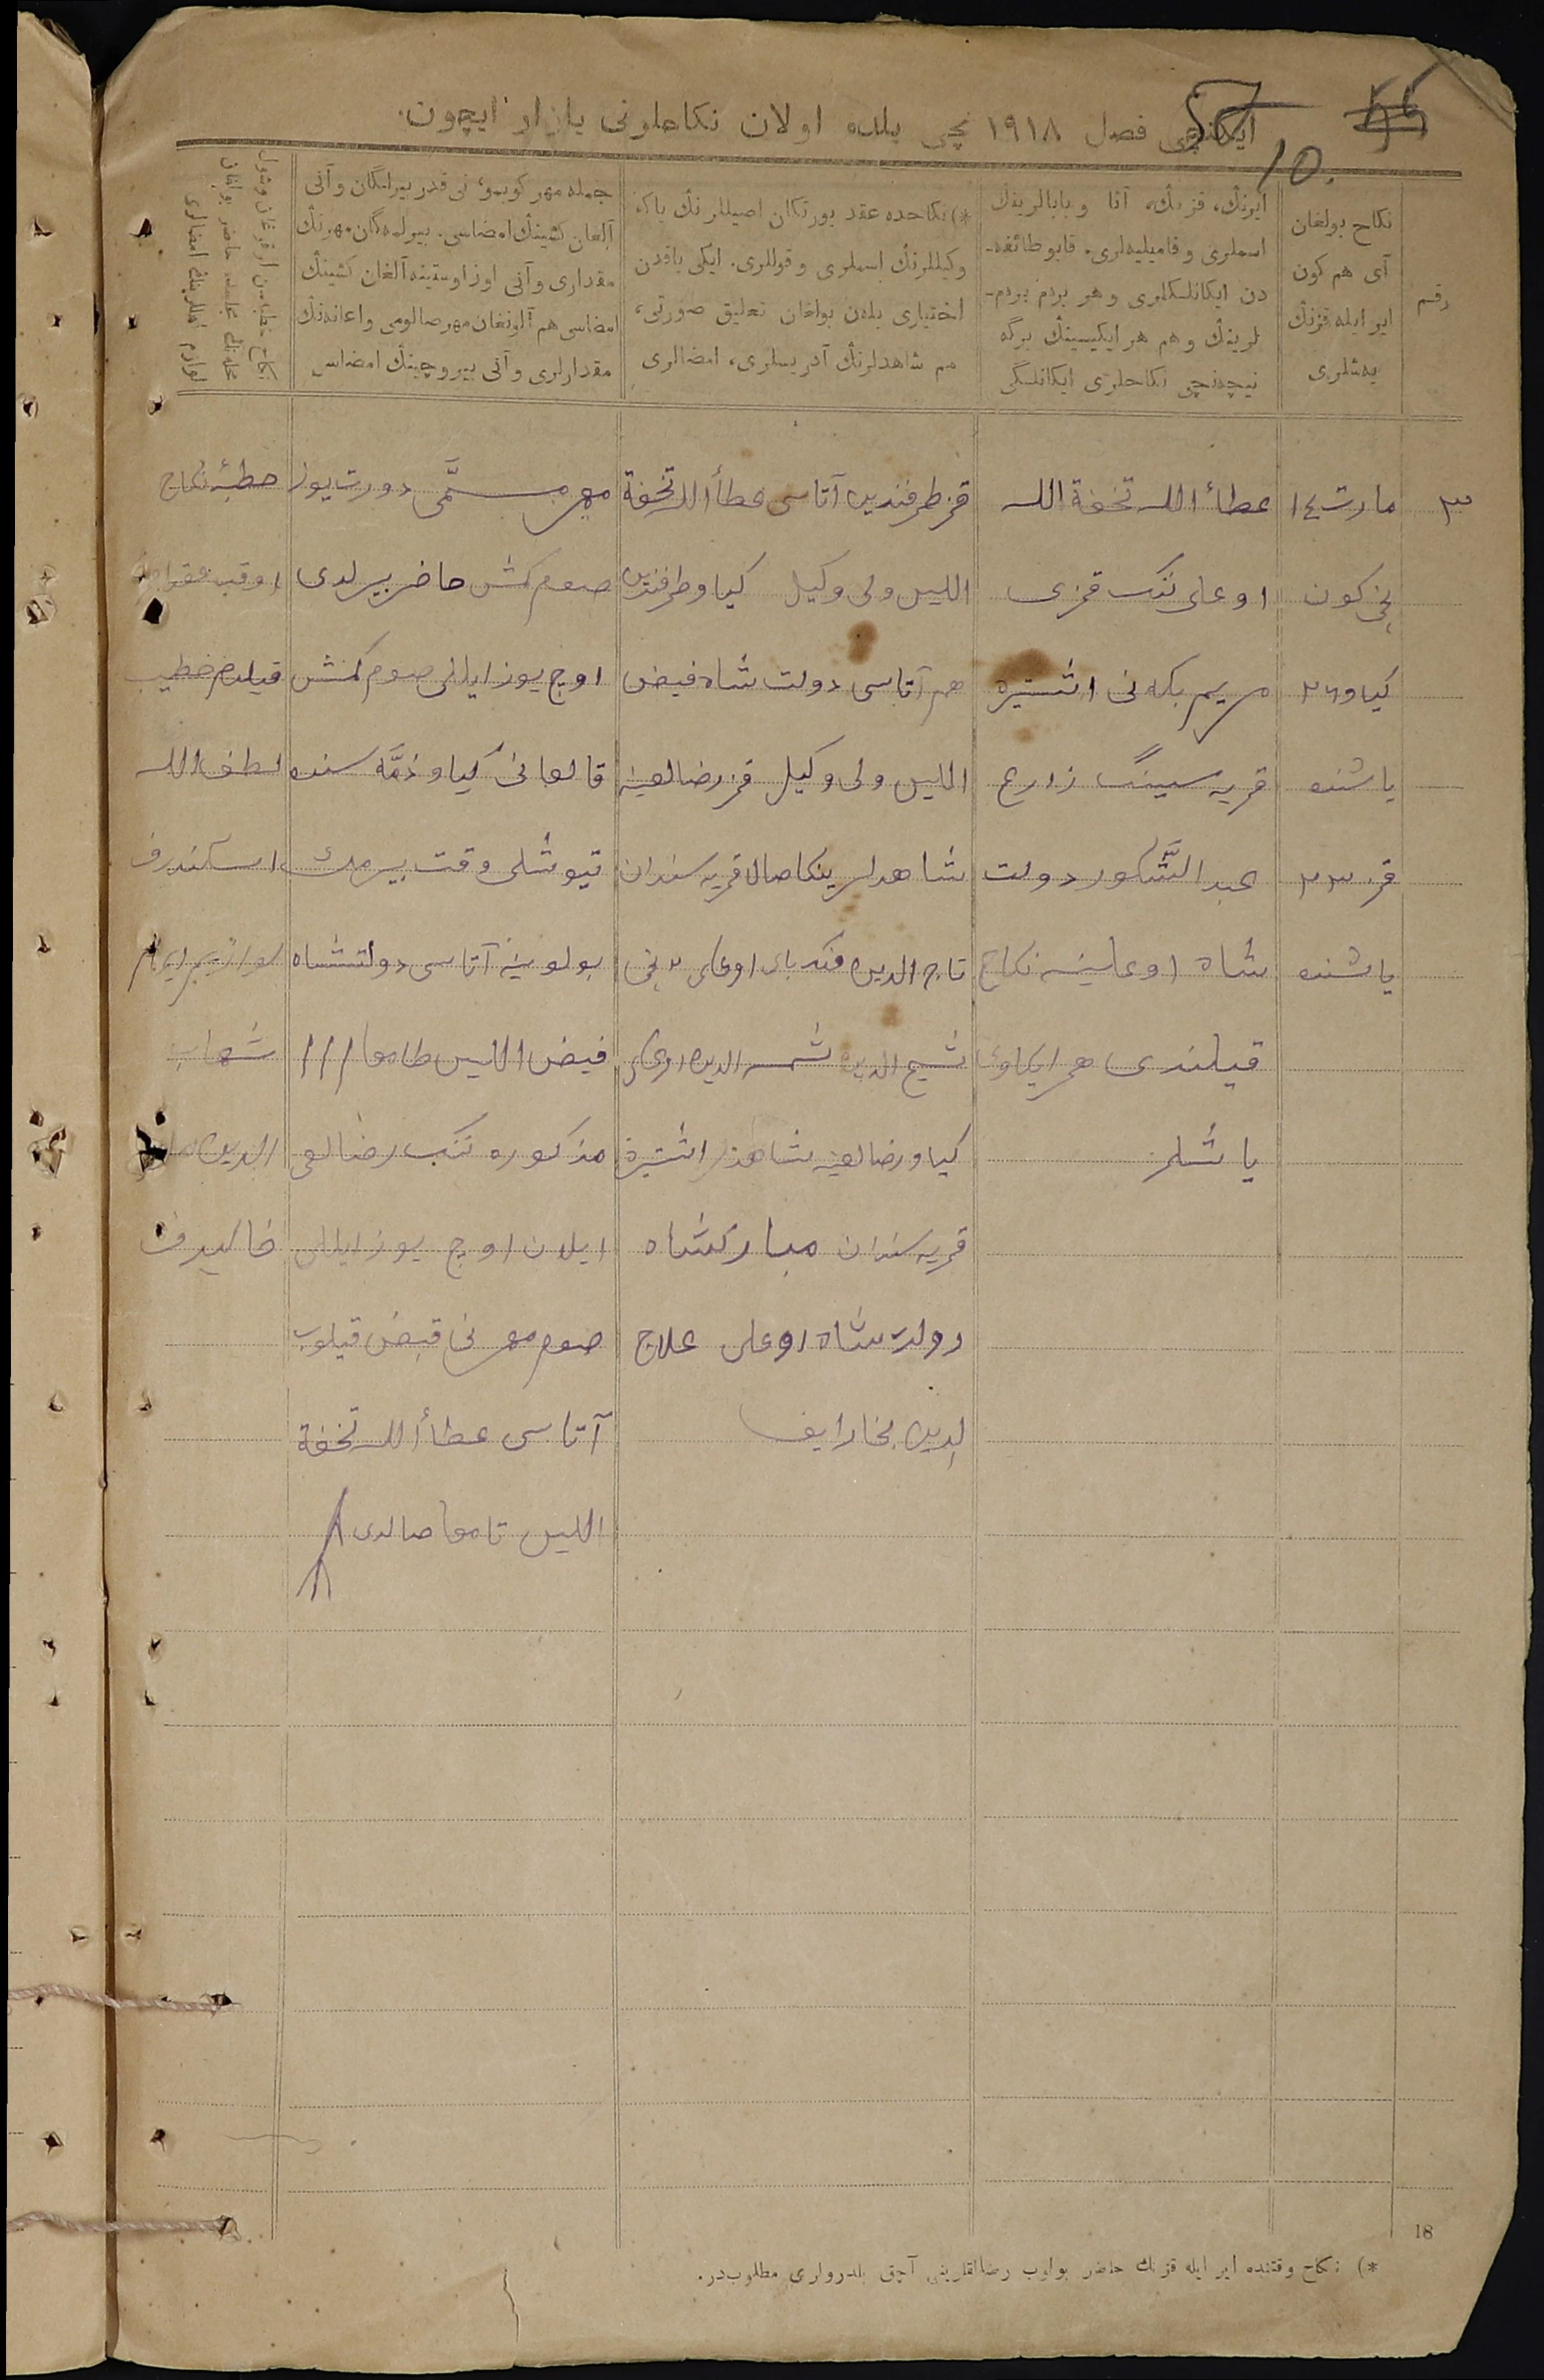 ایکنچی فصل ١٩١٨ نچی یلده اولان نکاحلرنی یازار ایچون.
10.
رقم
نکاح بولغان
آی هم کون
ایر ایله قزنڭ
یه‌شلری
ایرنڭ، قزنڭ، آتا و بابالرینڭ
اسملری و فامیلیه‌لری. قایو طائفه‌ـ
دن ایکانلکلری و هر بردم بردم‌ـ
لرینڭ و هم هر ایکیسینڭ برگه
نیچه‌نچی نکاحلری ایکانلگی
*) نکاحده عقد یورتکان اصیللرنڭ یاکه
وکیللرنڭ اسملری و قوللری. ایکی یاقدن
اختیاری بله‌ن بولغان تعلیق صورتی،
هم شاهدلرنڭ آدریسلری، امضالری
جمله مهر کوبمو، نی قدر بیرلگان و آنی
آلغان کشینڭ امضاسی. بیرلمه‌گان مهرنڭ
مقداری و آنی اوز اوستینه آلغان کشینڭ
امضاسی هم آلونغان مهر صالومی و اعانه‌نڭ
مقدارلری و آنی بیروچینڭ امضاس
٣
مارت ١٤
نچی کون
کیاو ٢٦
یاشنده
قز ٢٣
یاشنده
عطاء الله تحفة الله
اوعلی ننک قزی
مریم بکه نی اشتیره
قریه سینک زارع
عبد الشّکور دولت
شاه اوعلینه نکاح
قیلندی هم ایکاوی
یاشلر
قز طرفندین آتاسی عطاء الله تحفة
اللیس ولی وکیل کیاو طرفندین
هم آتاسی دولت شاه فیض
اللیس ولی وکیل قز رضالغینه
شاهدلر ینکاصالا قریه سندان
تاج الدین اوغلی ٢ نچی
شیخ الدین شمس الدین اوغلی
کیاو رضالغینه شاهدلر اشتیره
قریه سندان مبارکشاه
دولت شاه اوعلی علاج
الدین بخارایف
مهر مسمّی دورت یوز
صوم کمش حاضر بیرلدی
اوچ یوز ایللی صوم کمش
قالغانی کیاو ذمّه سنده
تیوشلی وقت بیرمک
بولوینه آتاسی دولتشاه
فیض اللیس طامغا ///
مذکوره ننک رضالغی
ایلان اوچ یوز ایللی
صوم مهرنی قبض قیلوب
آتاسی عطاء الله تحفة
اللیس تامغا صالدی
خطبۀ نکاح
قیلدم خطیب
لطف الله
اسکندرف
شهاب
الدین
خالیدف
18
*) نکاح وقتنده ایر ایله قزنڭ حاضر بولوب رضالقلرینی آچق بلدرولری مطلوب‌در.